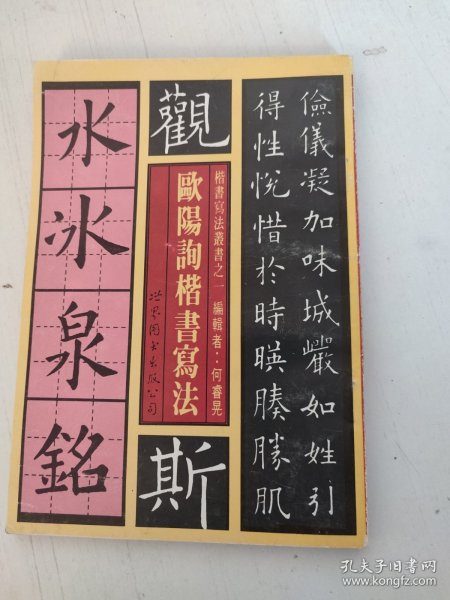 儉儀凝加味城嚴如姓引
得性悅惜於時暎腠勝肌
觀
楷書寫法叢書之一 編輯者：何睿晃
歐陽詢楷書寫法
世界图书出版公司
斯
水冰泉銘
孔夫子旧书网
www.kongfz.com